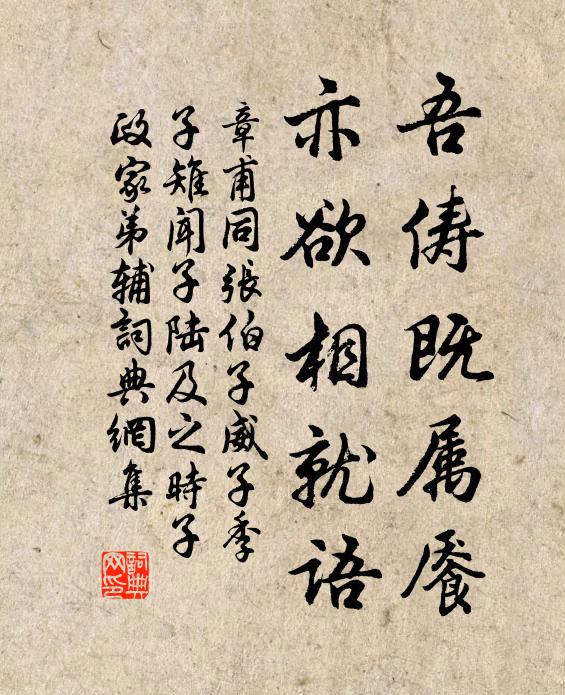 吾俦既属餍
亦欲相就语
章甫同张伯子威子季
子雉闻子陆及之时子
政家弟辅词典網集
詞典网印